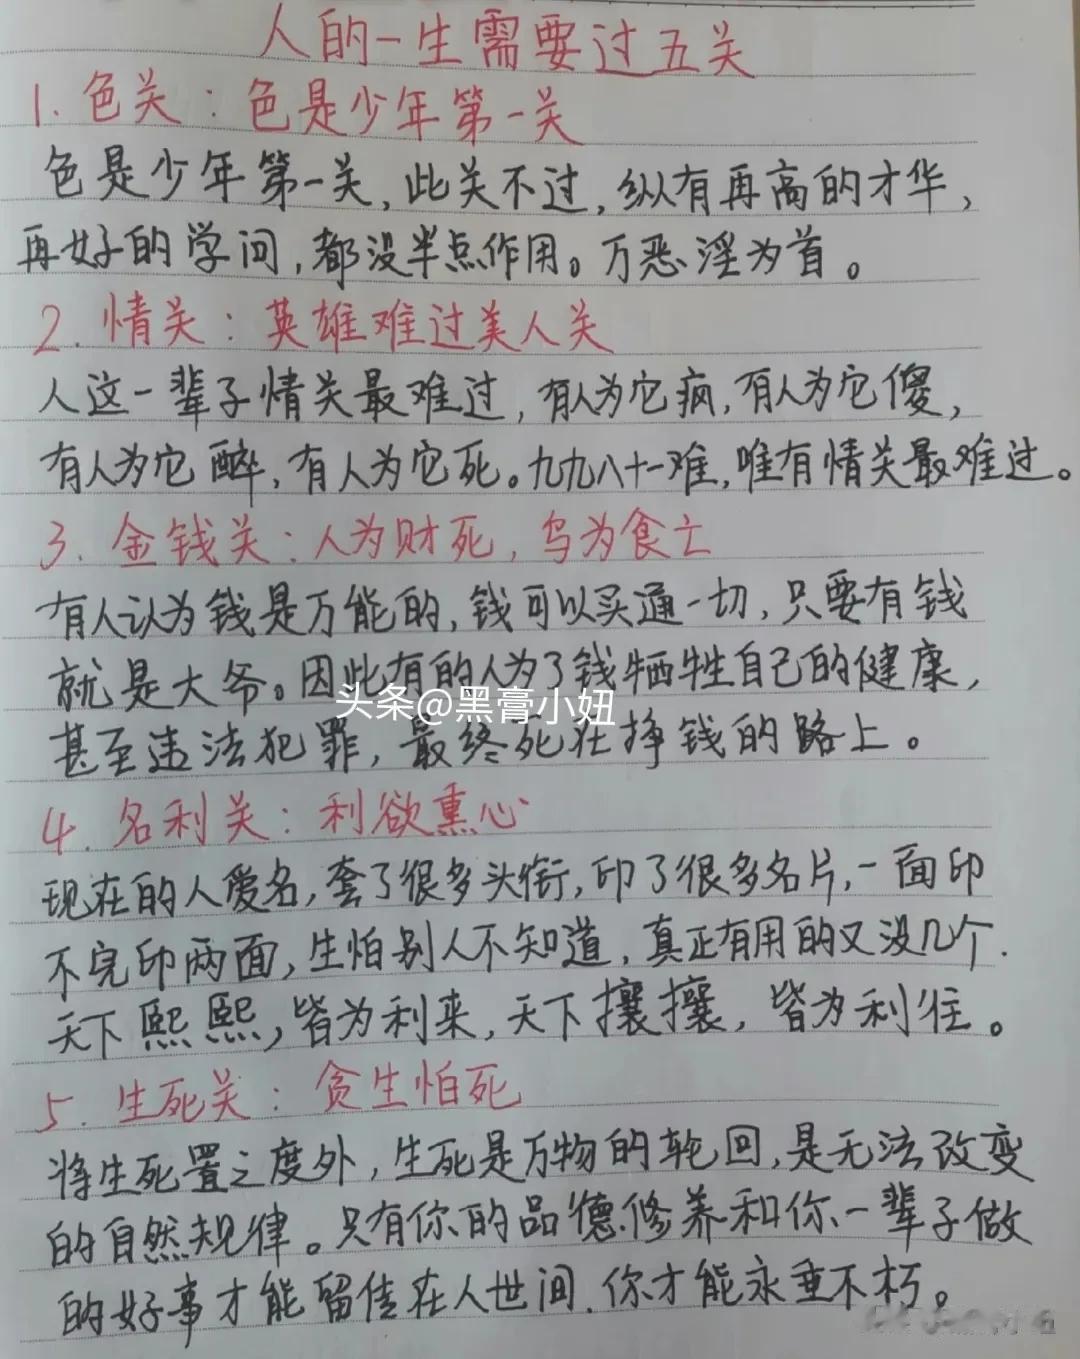 人的一生需要过五关
1. 色关：色是少年第一关
色是少年第一关，此关不过，纵有再高的才华，
再好的学问，都没半点作用。万恶淫为首。
2. 情关：英雄难过美人关
人这一辈子情关最难过，有人为它疯，有人为它傻，
有人为它醉，有人为它死。九九八十一难，唯有情关最难过。
3. 金钱关：人为财死，鸟为食亡
有人认为钱是万能的，钱可以买通一切，只要有钱
就是大爷。因此有的人为了钱牺牲自己的健康，
头条@黑膏小妞
甚至违法犯罪，最终死在挣钱的路上。
4. 名利关：利欲熏心
现在的人爱名，套了很多头衔，印了很多名片，一面印
不完印两面，生怕别人不知道，真正有用的又没几个.
天下熙熙，皆为利来，天下攘攘，皆为利往。
5. 生死关：贪生怕死
将生死置之度外，生死是万物的轮回，是无法改变
的自然规律。只有你的品德修养和你一辈子做
的好事才能留住在人世间.你才能永垂不朽。